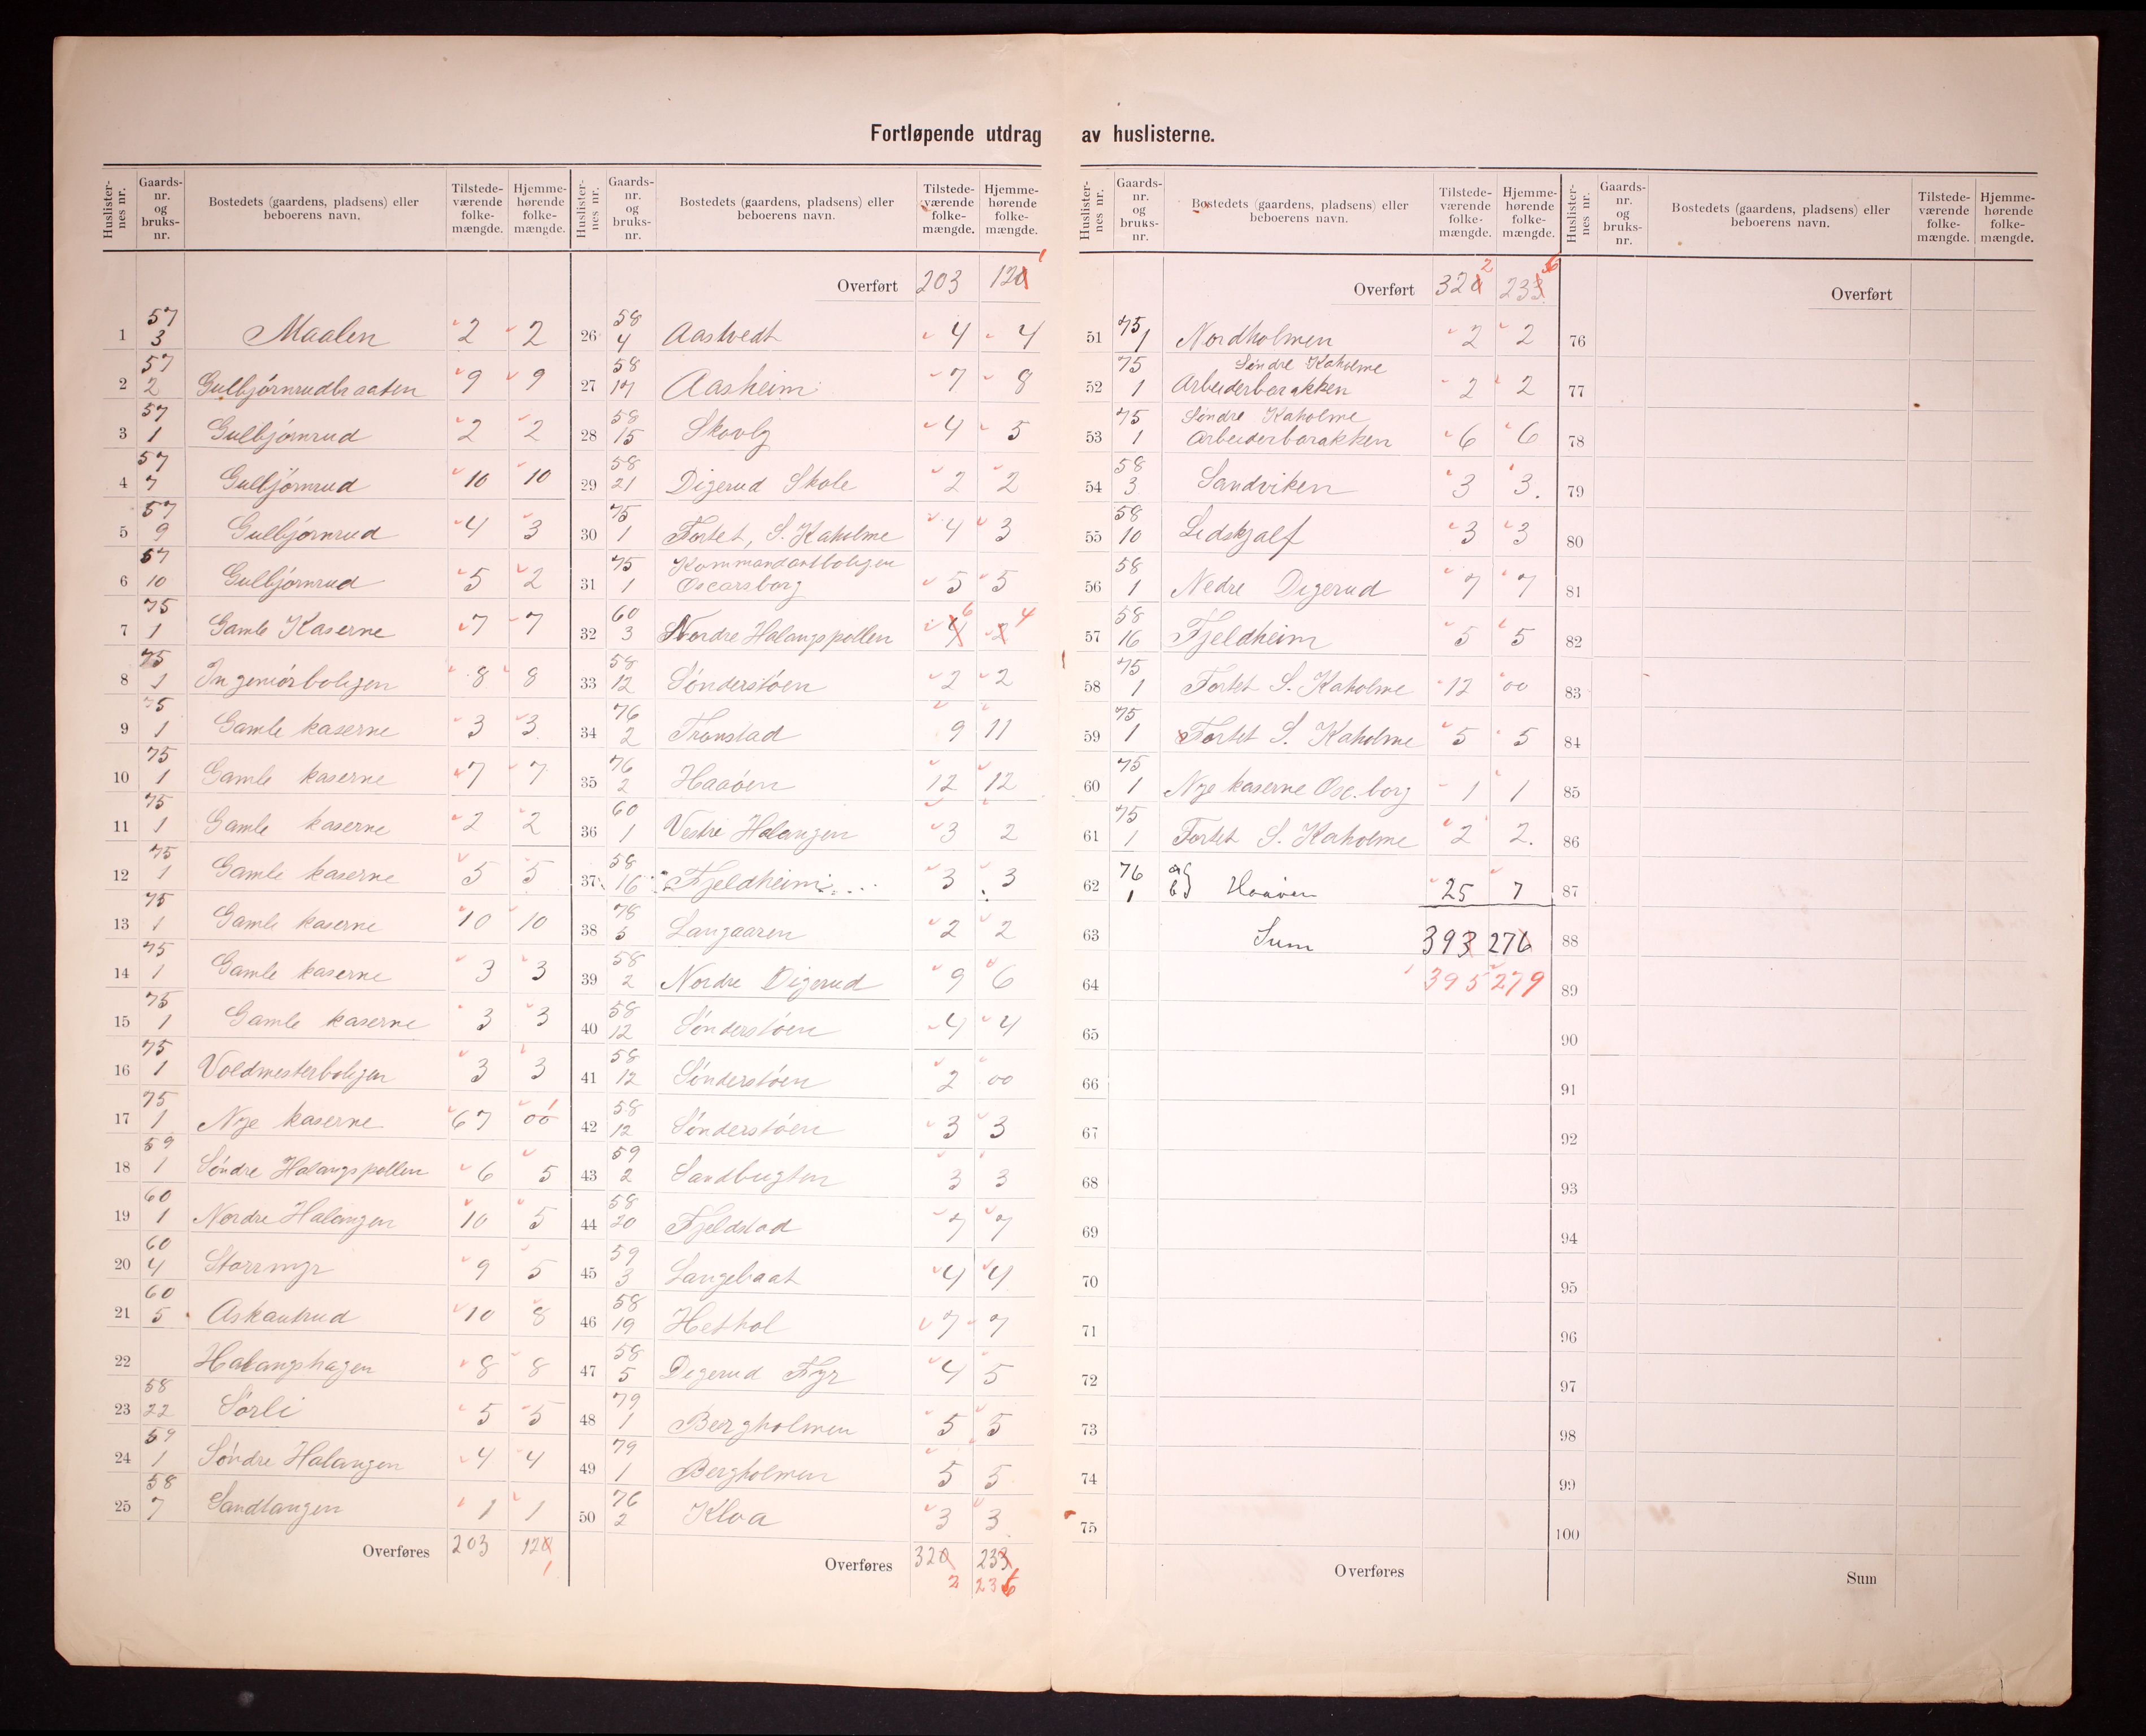 Fortløpende utdrag av huslisterne.
Huslister-nes nr. | Gaards-nr. og bruks-nr. | Bostedets (gaardens, pladsens) eller beboerens navn. | Tilstede-værende folke-mængde. | Hjemme-hørende folke-mængde.
1 57/3 Maalen 2 2
2 57/2 Gulbjørnrudbraaten 9 9
3 57/1 Gulbjørnrud 2 2
4 57/7 Gulbjørnrud 10 10
5 57/9 Gulbjørnrud 4 3
6 57/10 Gulbjørnrud 5 2
7 75/1 Gamle Kaserne 7 7
8 75/1 Ingeniørboligen 8 8
9 75/1 Gamle kaserne 3 3
10 75/1 Gamle kaserne 7 7
11 75/1 Gamle kaserne 2 2
12 75/1 Gamle kaserne 5 5
13 75/1 Gamle kaserne 10 10
14 75/1 Gamle kaserne 3 3
15 75/1 Gamle kaserne 3 3
16 75/1 Voldmesterboligen 3 3
17 75/1 Nye kaserne 67 00 1
18 59/1 Søndre Halangspollen 6 5
19 60/1 Nordre Halangen 10 5
20 60/4 Storrmyr 9 5
21 60/5 Askautrud 10 8
22 Halangshagen 8 8
23 58/22 Sørli 5 5
24 59/1 Søndre Halangen 4 4
25 58/7 Sandtangen 1 1
Overføres 203 120
1
Huslister-nes nr. | Gaards-nr. og bruks-nr. | Bostedets (gaardens, pladsens) eller beboerens navn. | Tilstede-værende folke-mængde. | Hjemme-hørende folke-mængde.
Overført 203 120 1
26 58/4 Aastvedt 4 4
27 58/17 Aasheim 7 8
28 58/15 Skovly 4 5
29 58/21 Digerud Skole 2 2
30 75/1 Fortet, S. Kaholme 4 3
31 75/1 Kommandantboligen
Oscarsborg 5 5
32 60/3 Nordre Halangspollen 4 6 2 4
33 58/12 Sønderstøen 2 2
34 76/2 Tronstad 9 11
35 76/2 Haaøen 12 12
36 60/1 Vestre Halangen 3 2
37 58/16 Fjeldheim 3 3
38 78/5 Langaaren 2 2
39 58/2 Nordre Digerud 9 6
40 58/12 Sønderstøen 4 4
41 58/12 Sønderstøen 2 00
42 58/12 Sønderstøen 3 3
43 59/2 Sandbugten 3 3
44 58/20 Fjeldstad 7 7
45 59/3 Langebaat 4 4
46 58/19 Hethol 7 7
47 58/5 Digerud Fyr 4 5
48 79/1 Bergholmen 5 5
49 79/1 Bergholmen 5 5
50 76/2 Kloa 3 3
Overføres 320 233
2 236
Huslister-nes nr. | Gaards-nr. og bruks-nr. | Bostedets (gaardens, pladsens) eller beboerens navn. | Tilstede-værende folke-mængde. | Hjemme-hørende folke-mængde.
Overført 320 2 233 6
51 75/1 Nordholmen 2 2
52 75/1 Søndre Kaholme
Arbeiderbarakken 2 2
53 75/1 Søndre Kaholme
Arbeiderbarakken 6 6
54 58/3 Sandviken 3 3.
55 58/10 Lidskjalf 3 3
56 58/1 Nedre Digerud 7 7
57 58/16 Fjeldheim 5 5
58 75/1 Fortet S. Kaholme 12 00
59 75/1 Fortet S. Kaholme 5 5
60 75/1 Nye kaserne Osc.borg 1 1
61 75/1 Fortet S. Kaholme 2 2.
62 76/1 a b Haaøen 25 7
63 Sum 393 276
64 395 279
65
66
67
68
69
70
71
72
73
74
75
Overføres
Huslister-nes nr. | Gaards-nr. og bruks-nr. | Bostedets (gaardens, pladsens) eller beboerens navn. | Tilstede-værende folke-mængde. | Hjemme-hørende folke-mængde.
Overført
76
77
78
79
80
81
82
83
84
85
86
87
88
89
90
91
92
93
94
95
96
97
98
99
100
Sum